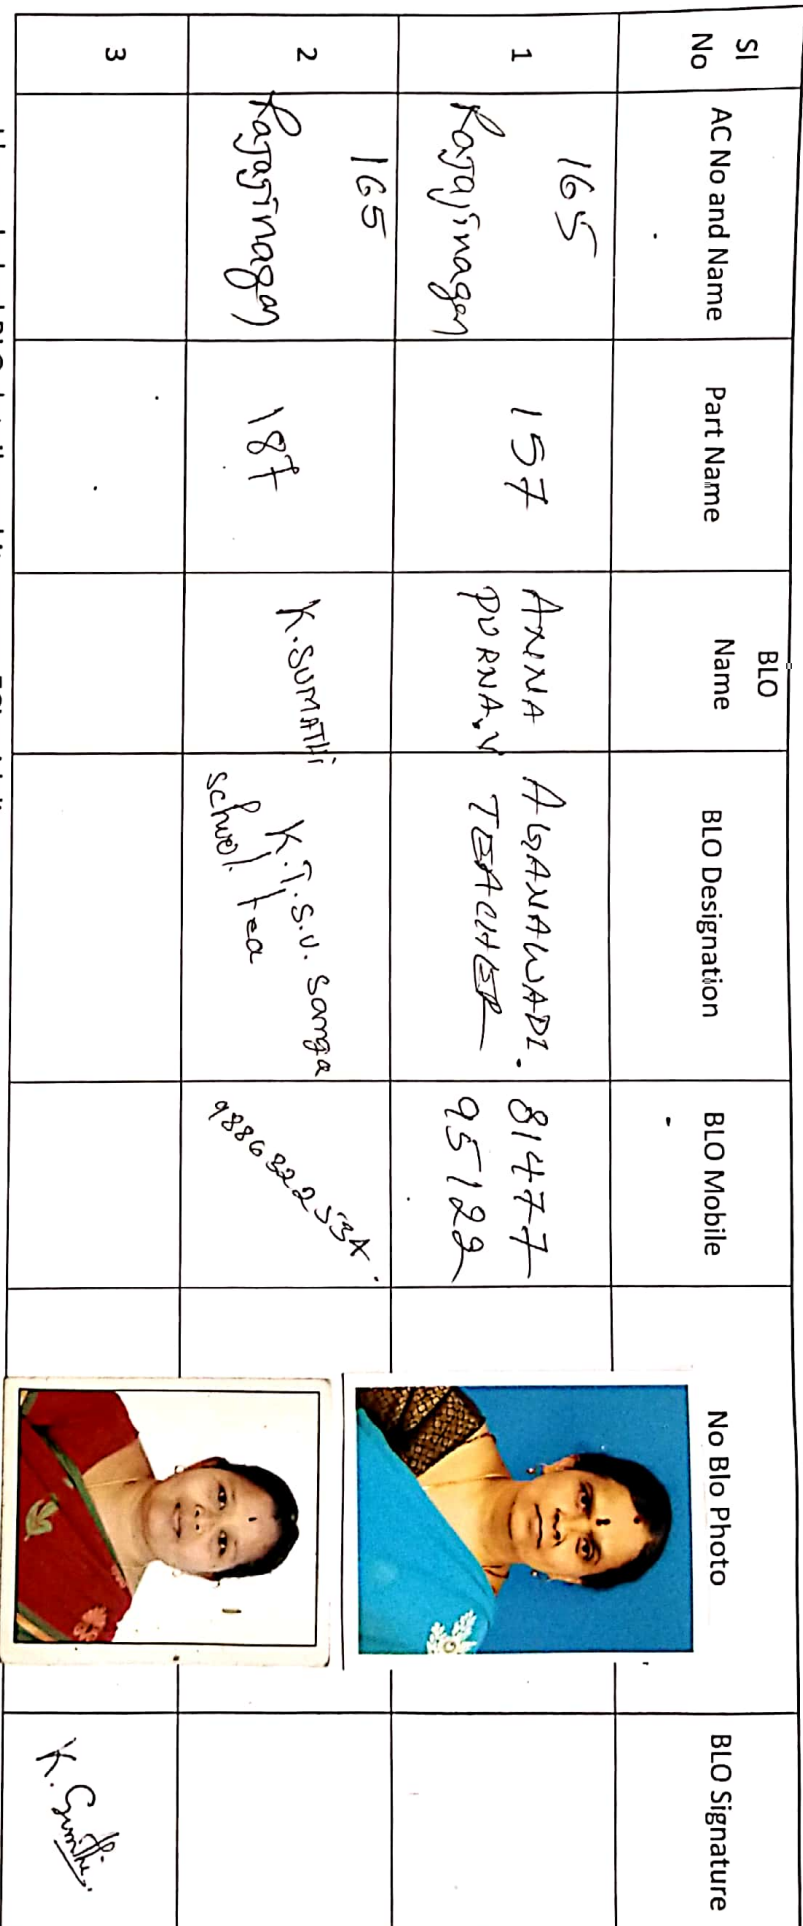 Sl No
AC No and Name
Part Name
BLO Name
BLO Designation
BLO Mobile
No Blo Photo
BLO Signature
1
165
Rajajinagar
157
ANNA
PURNA.V
AGANAWADI.
TEACHER
81477
95122
2
165
Rajajinagar
187
K.SUMATHi
K.T.S.V. Sanga
school. tea
988632253X.
3
K. Sumthi.